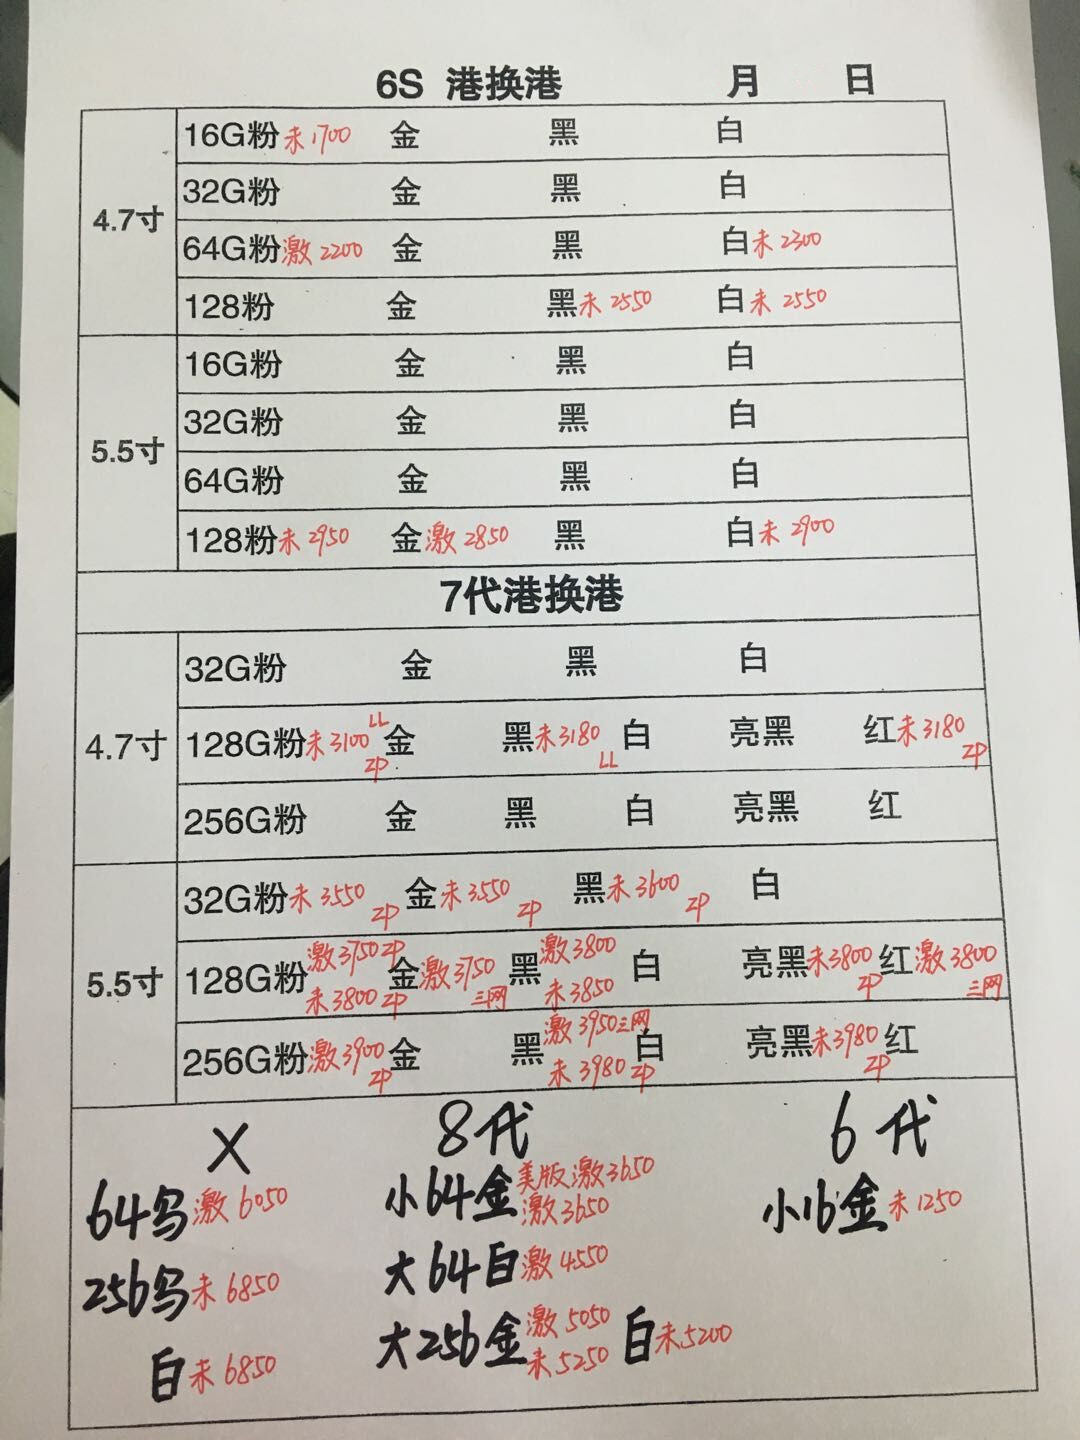 6S 港换港 月 日
4.7寸
16G粉 未1700 金 黑 白
32G粉 金 黑 白
64G粉 激2200 金 黑 白 未2300
128粉 金 黑 未2550 白 未2550
5.5寸
16G粉 金 黑 白
32G粉 金 黑 白
64G粉 金 黑 白
128粉 未2950 金 激2850 黑 白 未2900
7代港换港
4.7寸
32G粉 金 黑 白
128G粉 未3100 LL ZP 金 黑 未3180 LL 白 亮黑 红 未3180 ZP
256G粉 金 黑 白 亮黑 红
5.5寸
32G粉 未3550 ZP 金 未3550 ZP 黑 未3600 ZP 白
128G粉 激3750 ZP 未3800 ZP 金 激3750 三网 黑 激3800 未3850 白 亮黑 未3800 ZP 红 激3800 三网
256G粉 激3900 ZP 金 黑 激3950 三网 未3980 ZP 白 亮黑 未3980 ZP 红
X 8代 6代
64乌 激6050 小64金 美版激3650 激3650 小16金 未1250
256乌 未6850 大64白 激4550
白 未6850 大256金 激5050 未5250 白 未5200